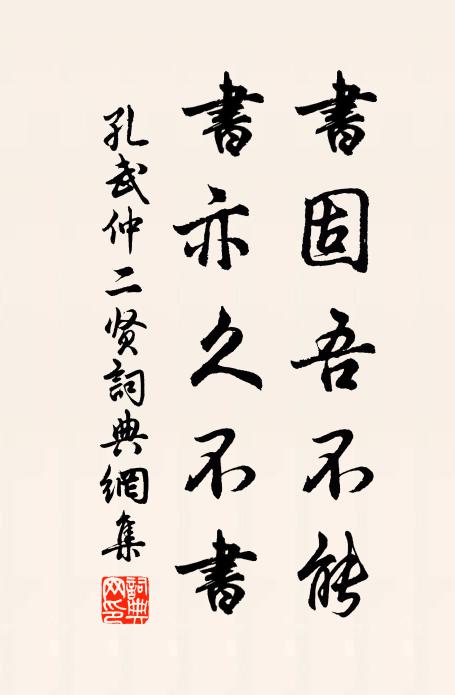 書固吾不能
書亦久不書
孔武仲二贤詞典網集
詞典
网印